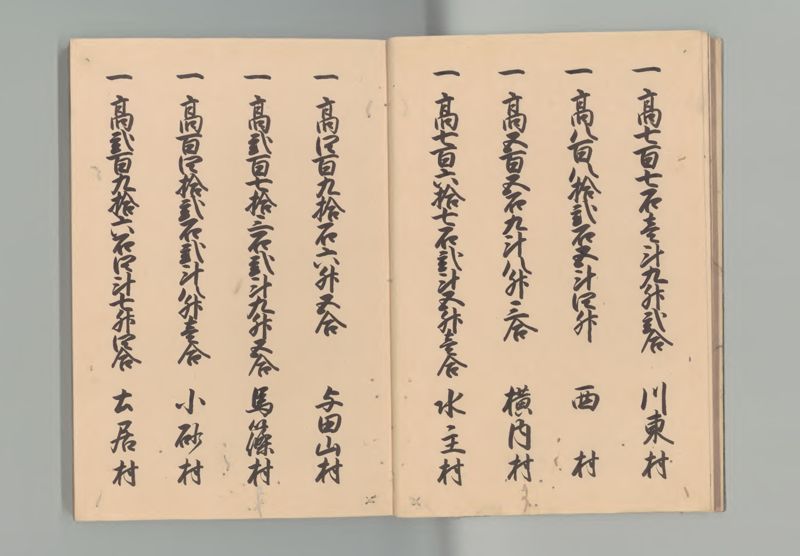 一 高七百七石壱斗九升弐合 川東村
一 高八百八拾弐石五斗四升 西村
一 高五百五石九斗八升三合 横内村
一 高七百六拾七石弐斗五升壱合 水主村
一 高四百九拾石六升五合 与田山村
一 高弐百七拾三石弐斗九升五合 馬篠村
一 高百四拾弐石弐斗八升壱合 小砂村
一 高弐百九拾六石四斗七升四合 土居村